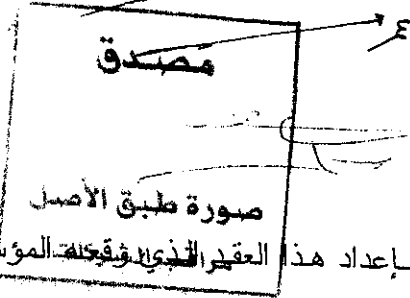 ٤
مصدق
صورة طبق الأصل
بإعداد هذا العقد الذي وقعته المؤس